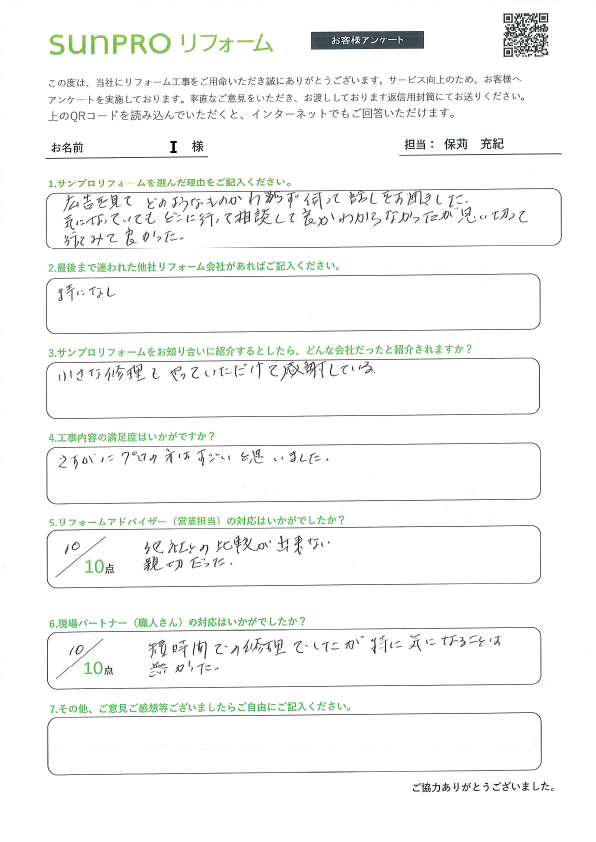 sunpro リフォーム
お客様アンケート
この度は、当社にリフォーム工事をご用命いただき誠にありがとうございます。サービス向上のため、お客様へ
アンケートを実施しております。率直なご意見をいただき、お渡ししております返信用封筒にてお送りください。
上のQRコードを読み込んでいただくと、インターネットでもご回答いただけます。
お名前 I 様
担当： 保苅 充紀
1.サンプロリフォームを選んだ理由をご記入ください。
広告を見て どのようなものかわ からず 伺って 話しをお聞きした。
気になっていても どこに行って相談して良かわからなかったが思い切って
行てみて良かった。
2.最後まで迷われた他社リフォーム会社があればご記入ください。
特になし
3.サンプロリフォームをお知り合いに紹介するとしたら、どんな会社だったと紹介されますか？
小さな修理も やっていただけて感謝している。
4.工事内容の満足度はいかがですか？
さすがに プロの方はすごいと思いました。
5.リフォームアドバイザー（営業担当）の対応はいかがでしたか？
10／10点
他社との比較が出来ない
親切だった。
6.現場パートナー（職人さん）の対応はいかがでしたか？
10／10点
短時間での修理でしたが 特に気になることは
無かった。
7.その他、ご意見ご感想等ございましたらご自由にご記入ください。
ご協力ありがとうございました。